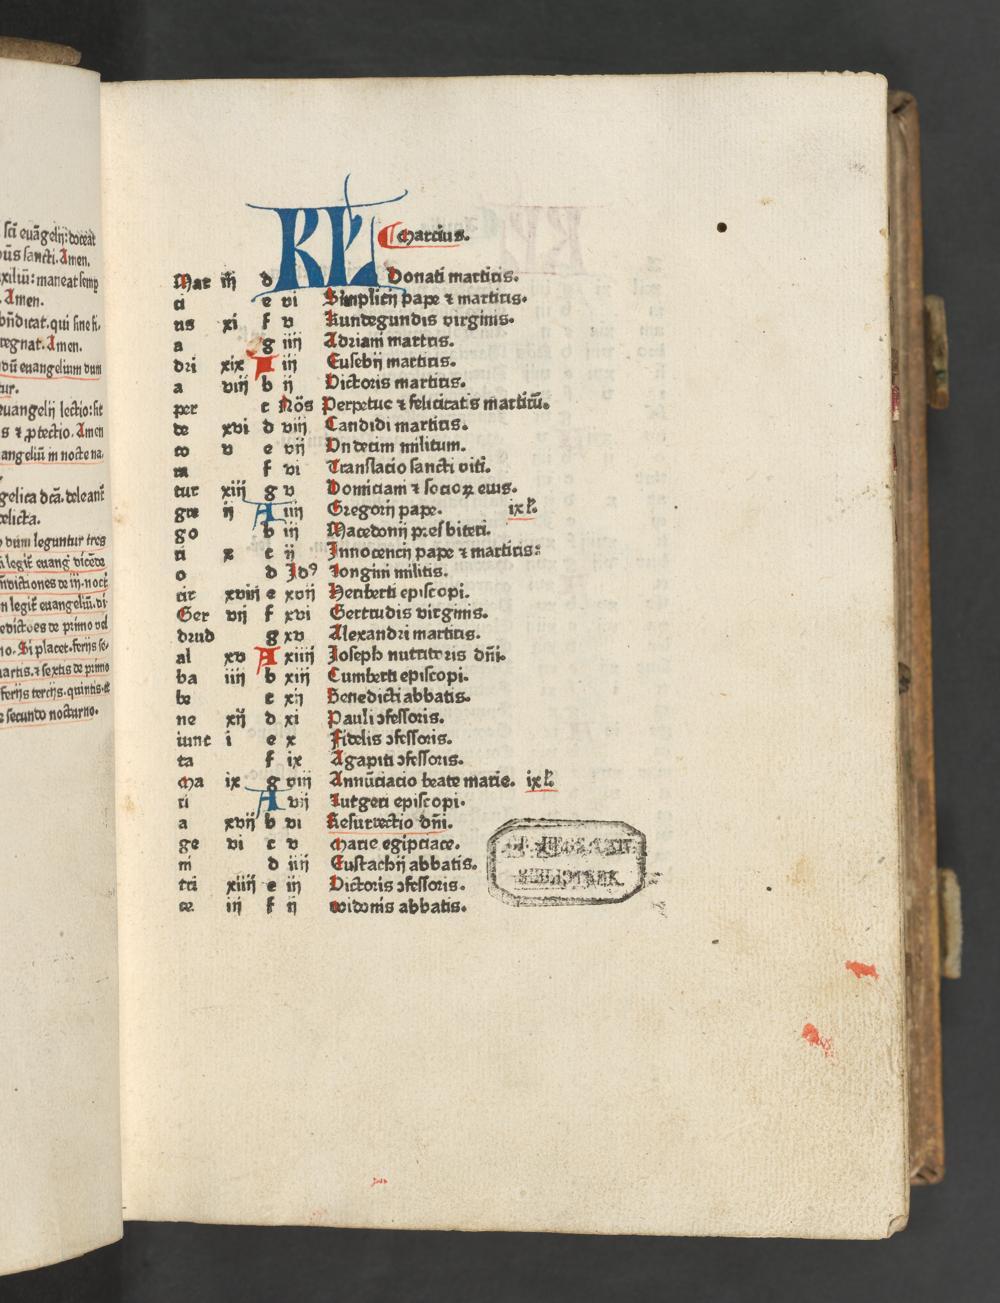 sci euãgelij: doceat
sancti. Amen.
xiliũ: maneat semp
Amen.
bñdicat. qui sine fi.
regnat. Amen.
dũ euangelium dum
tur.
euangelij lectio: sit
s ⁊ ꝓtectio. Amen
angeliũ in nocte na
gelica dcã. deleant̃
elicta.
dum leguntur tres
legit̃ euang̃ dicẽde
ñdictiones de iij. noct̃
n legit̃ euangeliũ. di
edictões de primo vel
no. Si placet. ferijs se.
artis. ⁊ sextis de primo
ferijs tercijs. quintis. ⁊
secundo nocturno.
KL Marcius.
Mar iij d Donati martiris.
ci e vi Simplicij pape ⁊ martiris.
us xi f v Kundegundis virginis.
a g iiij Adriani martris.
dri xix A iij Eusebij martiris.
a viij b ij Victoris martiris.
per c Nõs Perpetue ⁊ felicitatis martirũ.
de xvi d viij Candidi martiris.
co v e vij Vndecim militum.
m f vi Translacio sancti viti.
tur xiij g v Domiciani ⁊ socioꝝ eius.
gre ij A iiij Gregorij pape. ix ł.
go b iij Macedonij presbiteri.
ri x c ij Innocencij pape ⁊ martiris:
o d Idꝰ Longini militis.
cir xviij e xvij Heriberti episcopi.
Ger vij f xvi Gertrudis virginis.
drud g xv Alexandri martiris.
al xv A xiiij Ioseph nutritoris dñi.
ba iiij b xiij Cumberti episcopi.
be c xij Benedicti abbatis.
ne xij d xi Pauli ↄfessoris.
iunc i e x Fidelis ↄfessoris.
ta f ix Agapiti ↄfessoris.
Ma ix g viij Annũciacio beate marie. ix ł.
ri A vij Lutgeri episcopi.
a xvij b vi Resurrectio dñi.
ge vi c v Marie egipciace.
ni d iiij Eustachij abbatis.
tri xiiij e iij Victoris ↄfessoris.
ce. iij f ij Widonis abbatis.
BIBLIOTHEK